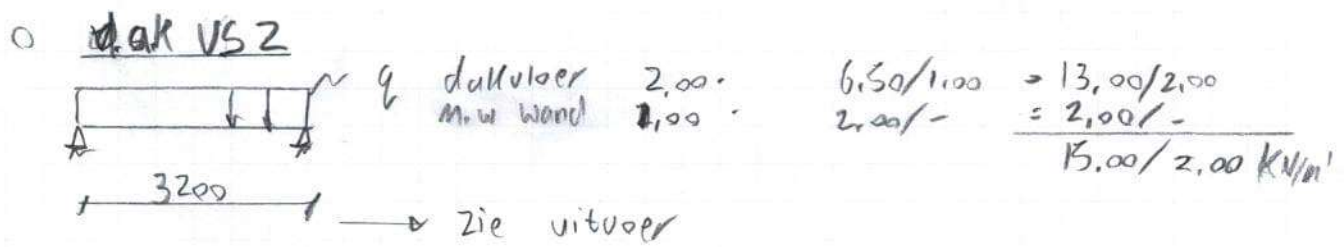 dak VS2
q dakvloer 2,00 · 6,50/1,00 = 13,00/2,00
m.w wand 1,00 · 2,00/- = 2,00/-
15,00/2,00 kN/m'
3200
→ zie uitvoer